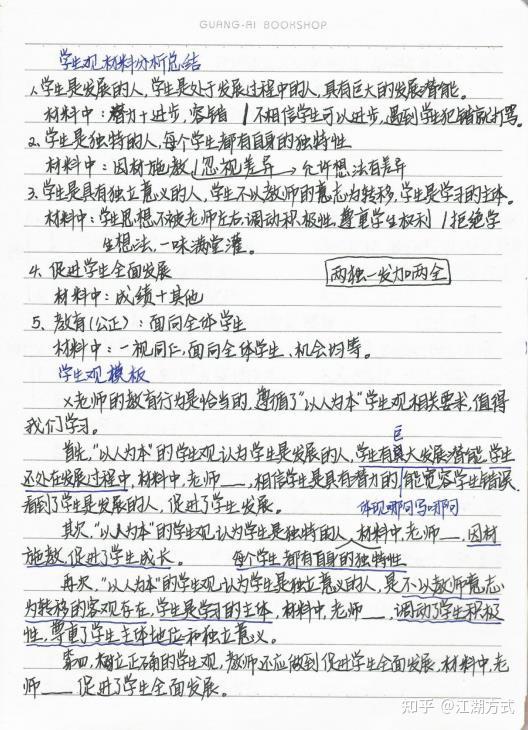 GUANG-AI BOOKSHOP
学生观材料分析总结
1.学生是发展的人,学生是处于发展过程中的人,具有巨大的发展潜能。
材料中:潜力+进步,容错 / 不相信学生可以进步,遇到学生犯错就打骂。
2.学生是独特的人,每个学生都有自身的独特性
材料中:因材施教 / 忽视差异 → 允许想法有差异
3.学生是具有独立意义的人,学生不以教师的意志为转移,学生是学习的主体。
材料中:学生思想不被老师左右,调动积极性,尊重学生权利 / 拒绝学
生想法,一味满堂灌。
4.促进学生全面发展
两独一发加两全
材料中:成绩+其他
5、教育(公正):面向全体学生
材料中:一视同仁,面向全体学生、机会均等。
学生观模板
X老师的教育行为是恰当的,遵循了"以人为本"学生观相关要求,值得
我们学习。
首先,"以人为本"的学生观认为学生是发展的人,学生有巨大发展潜能,学生
还处在发展过程中,材料中,老师___,相信学生是具有潜力的,能宽容学生错误,
看到了学生是发展的人,促进了学生发展。
体现哪问写哪问
其次,"以人为本"的学生观认为学生是独特的人,材料中,老师__,因材
施教,促进了学生成长。
每个学生都有自身的独特性
再次,"以人为本"的学生观认为学生是独立意义的人,是不以教师意志
为转移的客观存在,学生是学习的主体,材料中,老师___,调动了学生积极
性,尊重了学生主体地位和独立意义。
第四,树立正确的学生观,教师还应做到促进学生全面发展,材料中,老
师___促进了学生全面发展。
知乎 @江湖方式